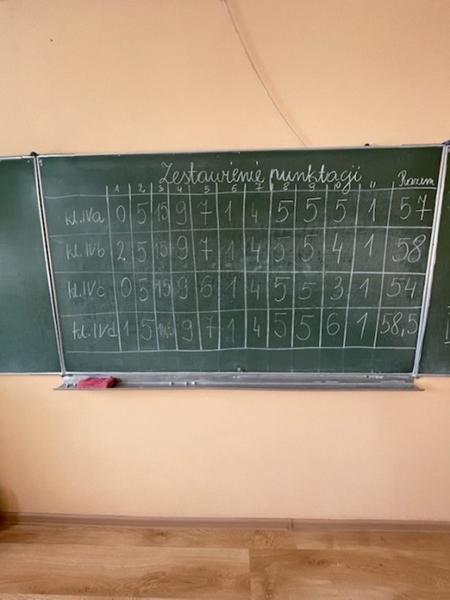 Zestawienie punktacji
1 2 3 4 5 6 7 8 9 10 11 Razem
kl. IVa 0 5 15 9 7 1 4 5 5 5 1 57
kl. IVb 2 5 15 9 7 1 4 5 5 4 1 58
kl. IVc 0 5 15 9 6 1 4 5 5 3 1 54
kl. IVd 1 5 14,5 9 7 1 4 5 5 6 1 58,5